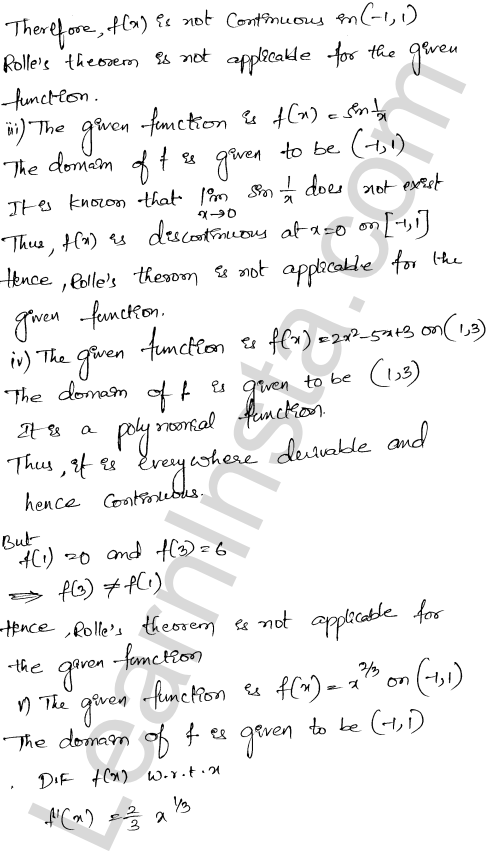 Therefore, f(x) is not continuous in (-1, 1)
Rolle's theorem is not applicable for the given
function.
iii) The given function is f(x) = sin 1/x
The domain of f is given to be (-1, 1)
It is known that lim x→0 sin 1/x does not exist
Thus, f(x) is discontinuous at x=0 on [-1, 1]
Hence, Rolle's therom is not applicable for the
given function.
iv) The given function is f(x) = 2x²-5x+3 on (1, 3)
The domain of f is given to be (1, 3)
It is a polynomial function.
Thus, it is everywhere derivable and
hence continuous.
But
f(1) = 0 and f(3) = 6
⇒ f(3) ≠ f(1)
Hence, Rolle's theorem is not applicable for
the given function
v) The given function is f(x) = x^2/3 on (-1, 1)
The domain of f is given to be (-1, 1)
DIF f(x) w.r.t. x
f'(x) = 2/3 x^1/3
LearnInsta.com